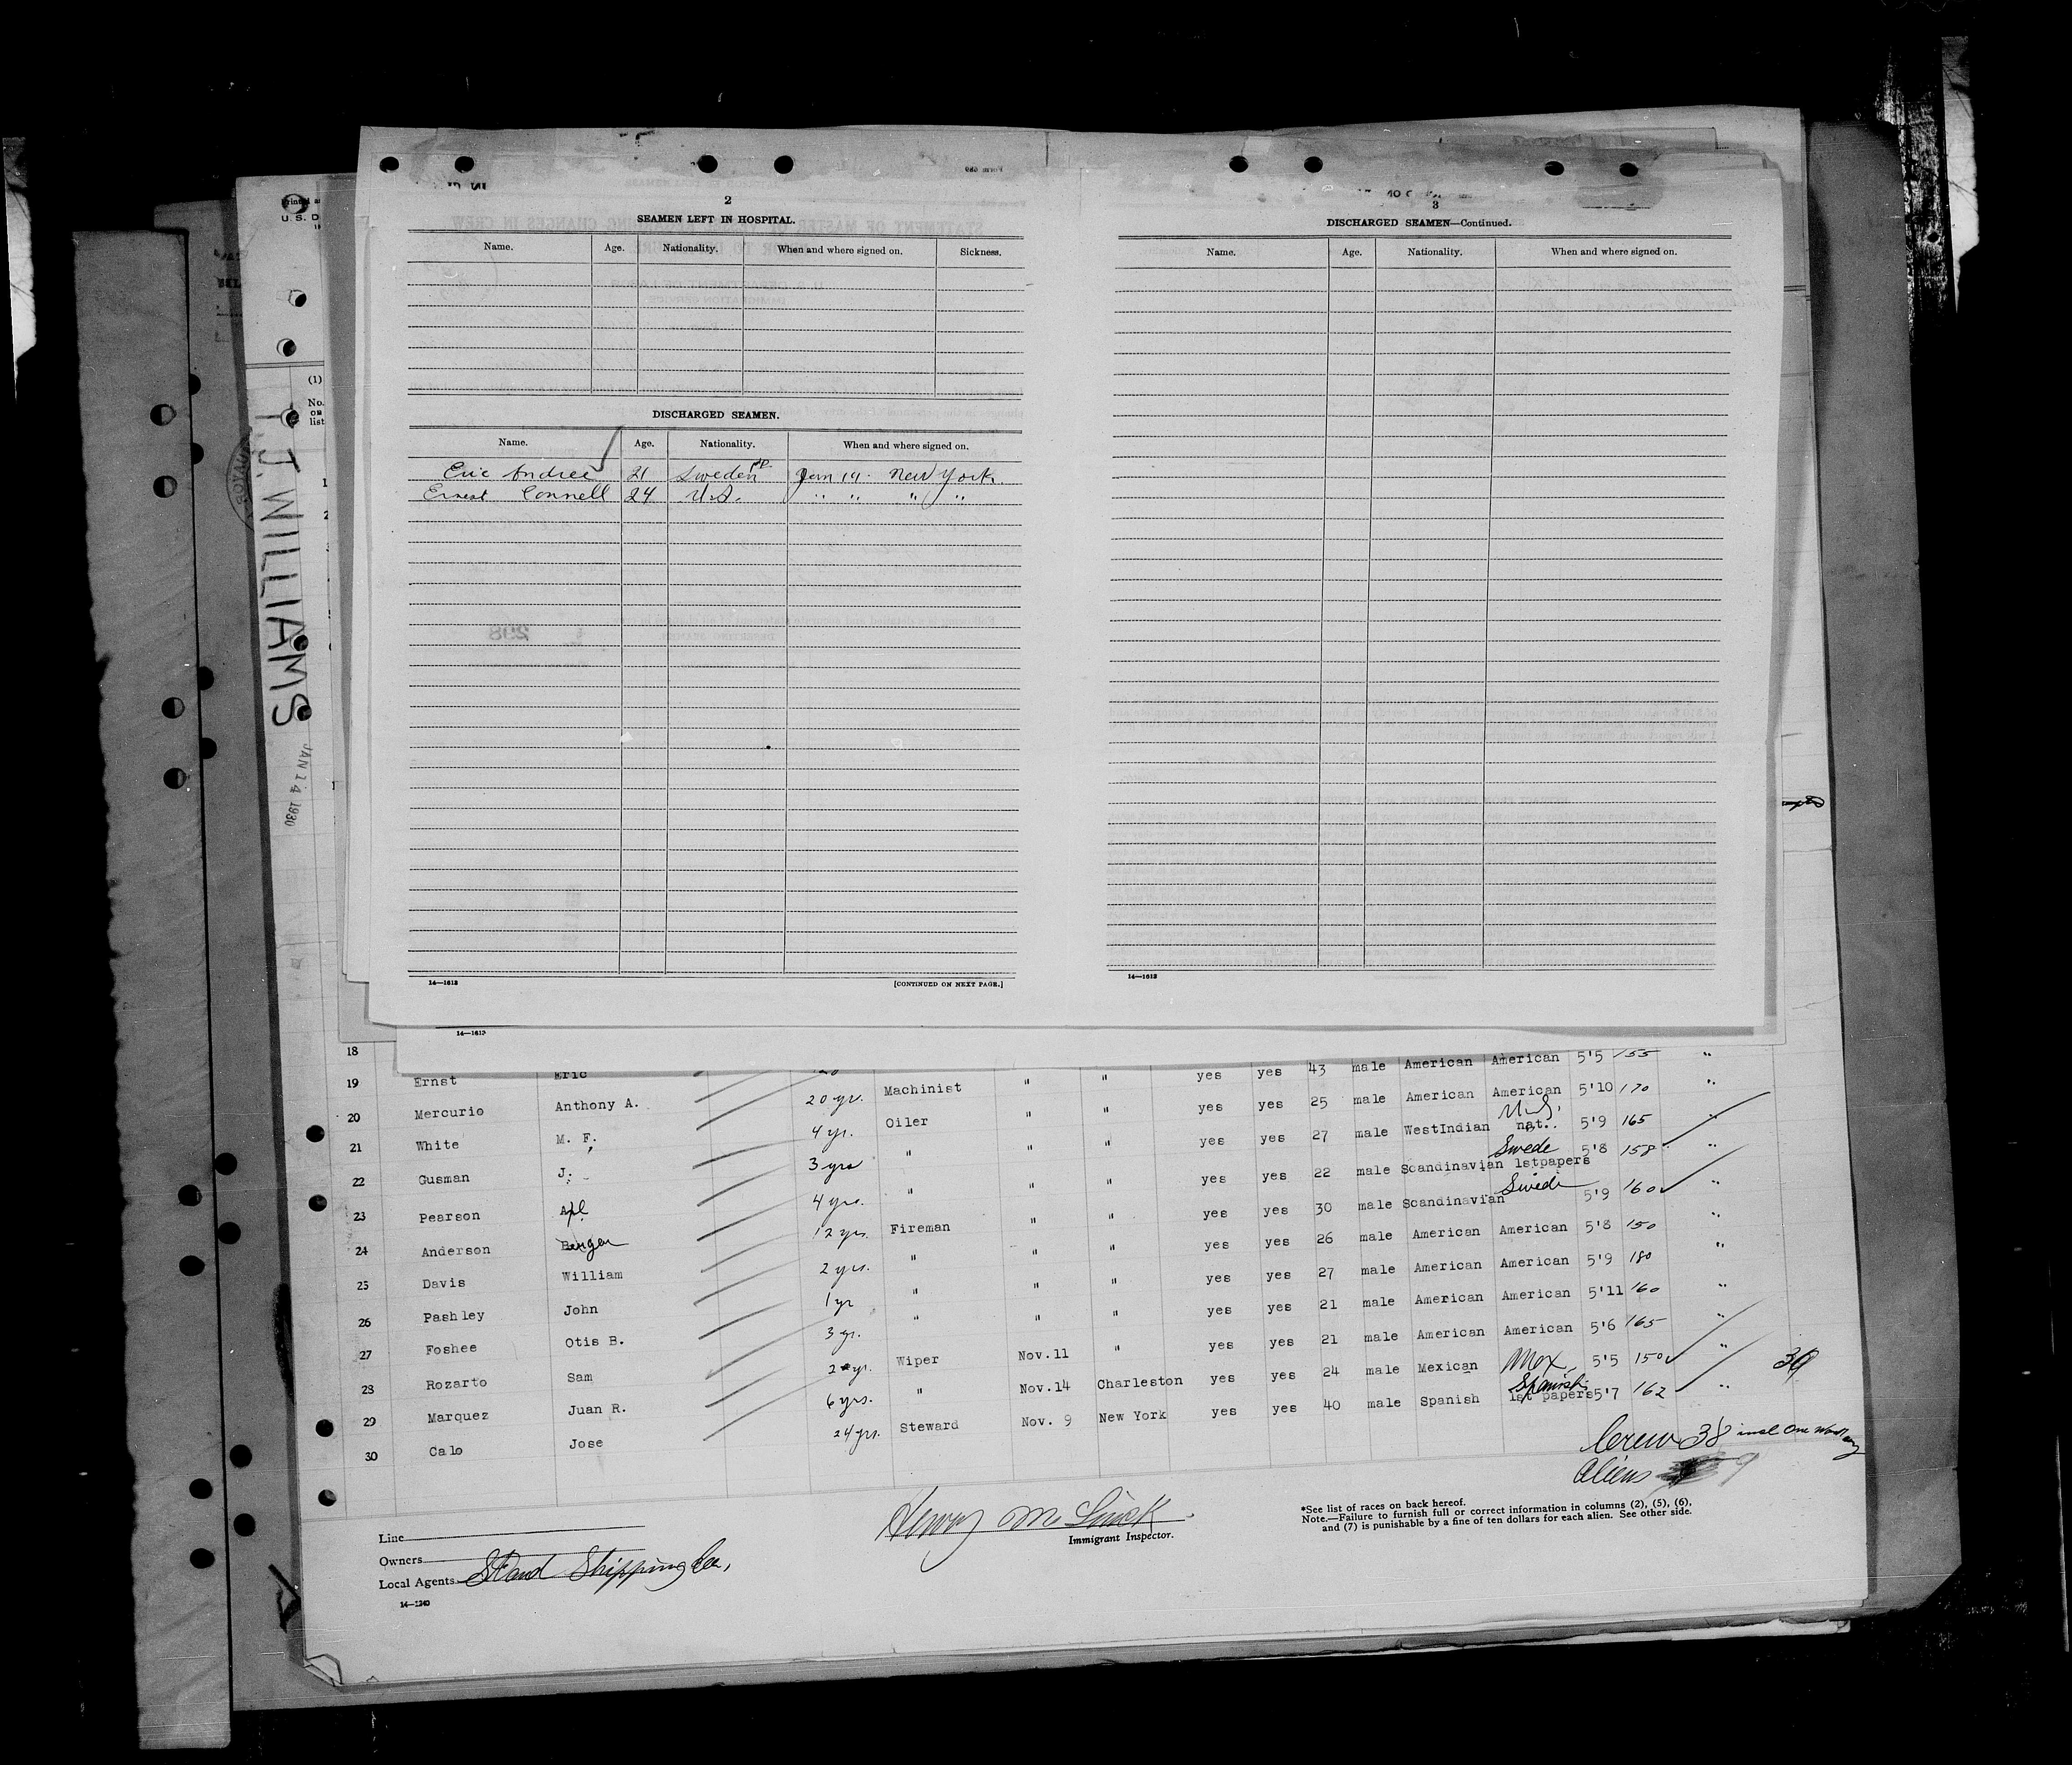 2
SEAMEN LEFT IN HOSPITAL.
Name. Age. Nationality. When and where signed on. Sickness.
DISCHARGED SEAMEN.
Name. Age. Nationality. When and where signed on.
Eric Andree 21 Sweden Jan 14 New York
Ernest Connell 24 U.S. " " " "
14—1613
[CONTINUED ON NEXT PAGE.]
3
DISCHARGED SEAMEN—Continued.
Name. Age. Nationality. When and where signed on.
14—1613
14—1613
Printed
U. S. D
(1)
No. on list
T. J. WILLIAMS
JAN 14 1930
18
19 Ernst Eric Machinist " " yes yes 43 male American American 5'5 155 "
20 Mercurio Anthony A. 20 yr. Oiler " " yes yes 25 male American American 5'10 170 "
21 White M. F. 4 yr. " " " yes yes 27 male WestIndian U.S. nat. 5'9 165 "
22 Gusman J. 3 yrs " " " yes yes 22 male Scandinavian Swede 1stpapers 5'8 158 "
23 Pearson 4 yrs. Fireman " " yes yes 30 male Scandinavian Swede 5'9 160 "
24 Anderson Berger 12 yrs. " " " yes yes 26 male American American 5'8 150 "
25 Davis William 2 yrs. " " " yes yes 27 male American American 5'9 180 "
26 Pashley John 1 yr " " " yes yes 21 male American American 5'11 160 "
27 Foshee Otis B. 3 yr. Wiper Nov.11 " yes yes 21 male American American 5'6 165 "
28 Rozarto Sam 2 yr. " Nov.14 Charleston yes yes 24 male Mexican Mex. 5'5 150 "
29 Marquez Juan R. 6 yrs. Steward Nov. 9 New York yes yes 40 male Spanish Spanish 1st papers 5'7 162 "
30 Calo Jose 24 yrs.
39
Crew 38 incl One
Aliens 9
Line
Owners
Local Agents Shipping Co.,
14—1240
Immigrant Inspector.
*See list of races on back hereof.
Note.—Failure to furnish full or correct information in columns (2), (5), (6),
and (7) is punishable by a fine of ten dollars for each alien. See other side.